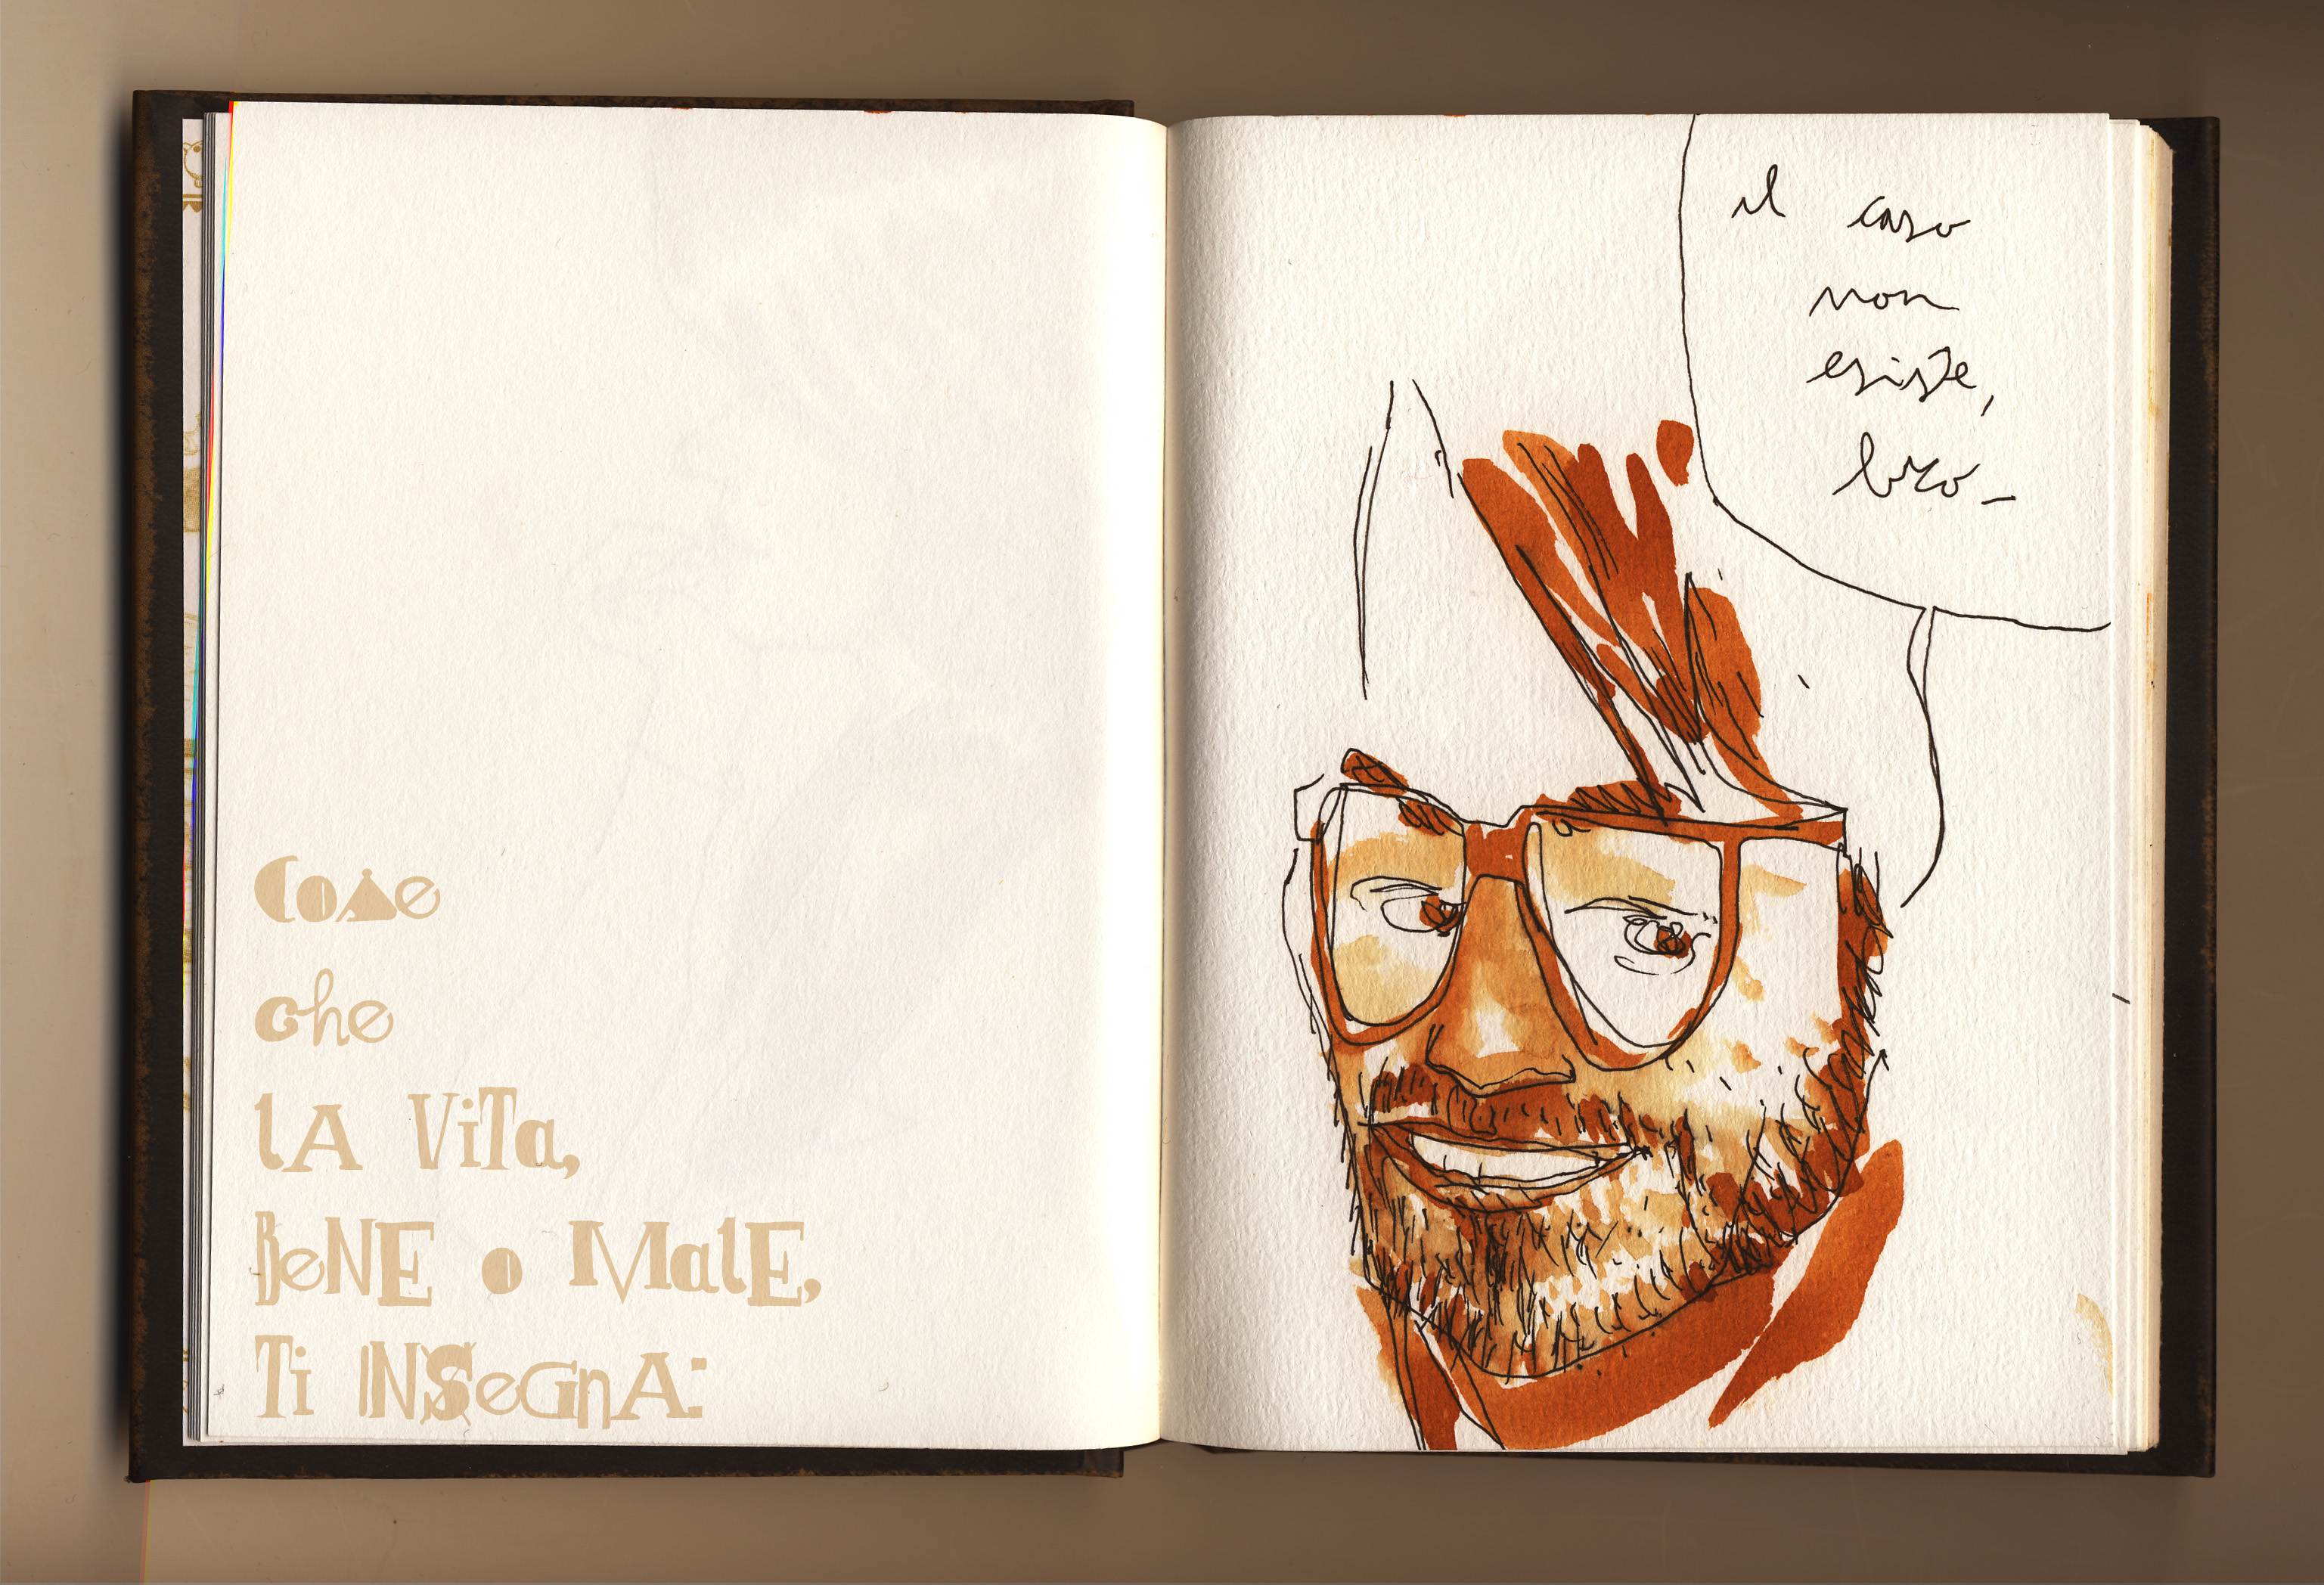 CoMe
che
lA ViTa,
BeNE o MalE,
Ti INSeGnA:
il caso
non
esiste,